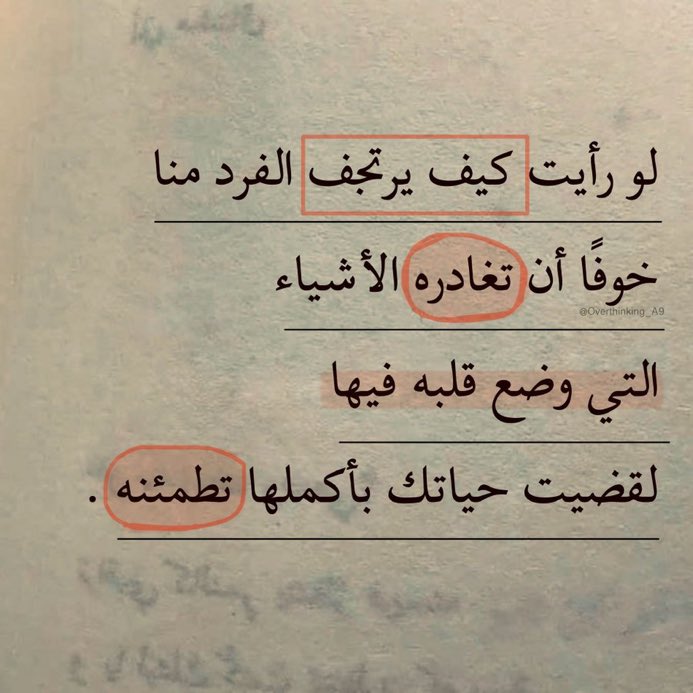 لو رأيت كيف يرتجف الفرد منا
خوفًا أن تغادره الأشياء
@Overthinking_A9
التي وضع قلبه فيها
لقضيت حياتك بأكملها تطمئنه .